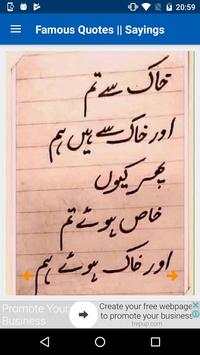 20:59
Famous Quotes || Sayings
خاک سے تم
اور خاک سے ہیں ہم
پھر کیوں
خاص ہوئے تم
اور خاک ہوئے ہم
Promote Your Business
Create your free webpage
to promote your business
trepup.com